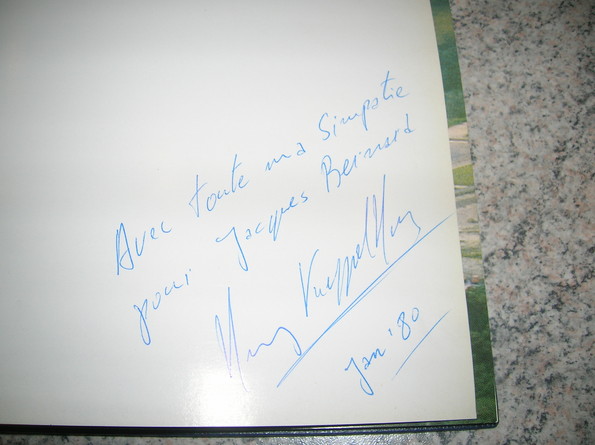 Avec toute ma Simpatie
pour Jacques Bernard
Jan '80